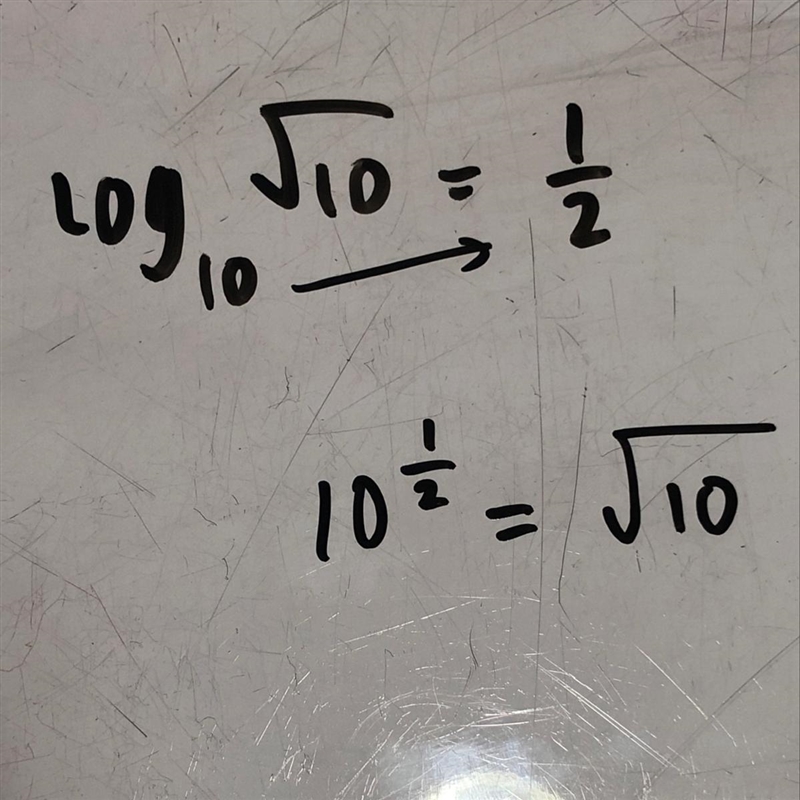 Log₁₀ √10 = 1/2
10^(1/2) = √10